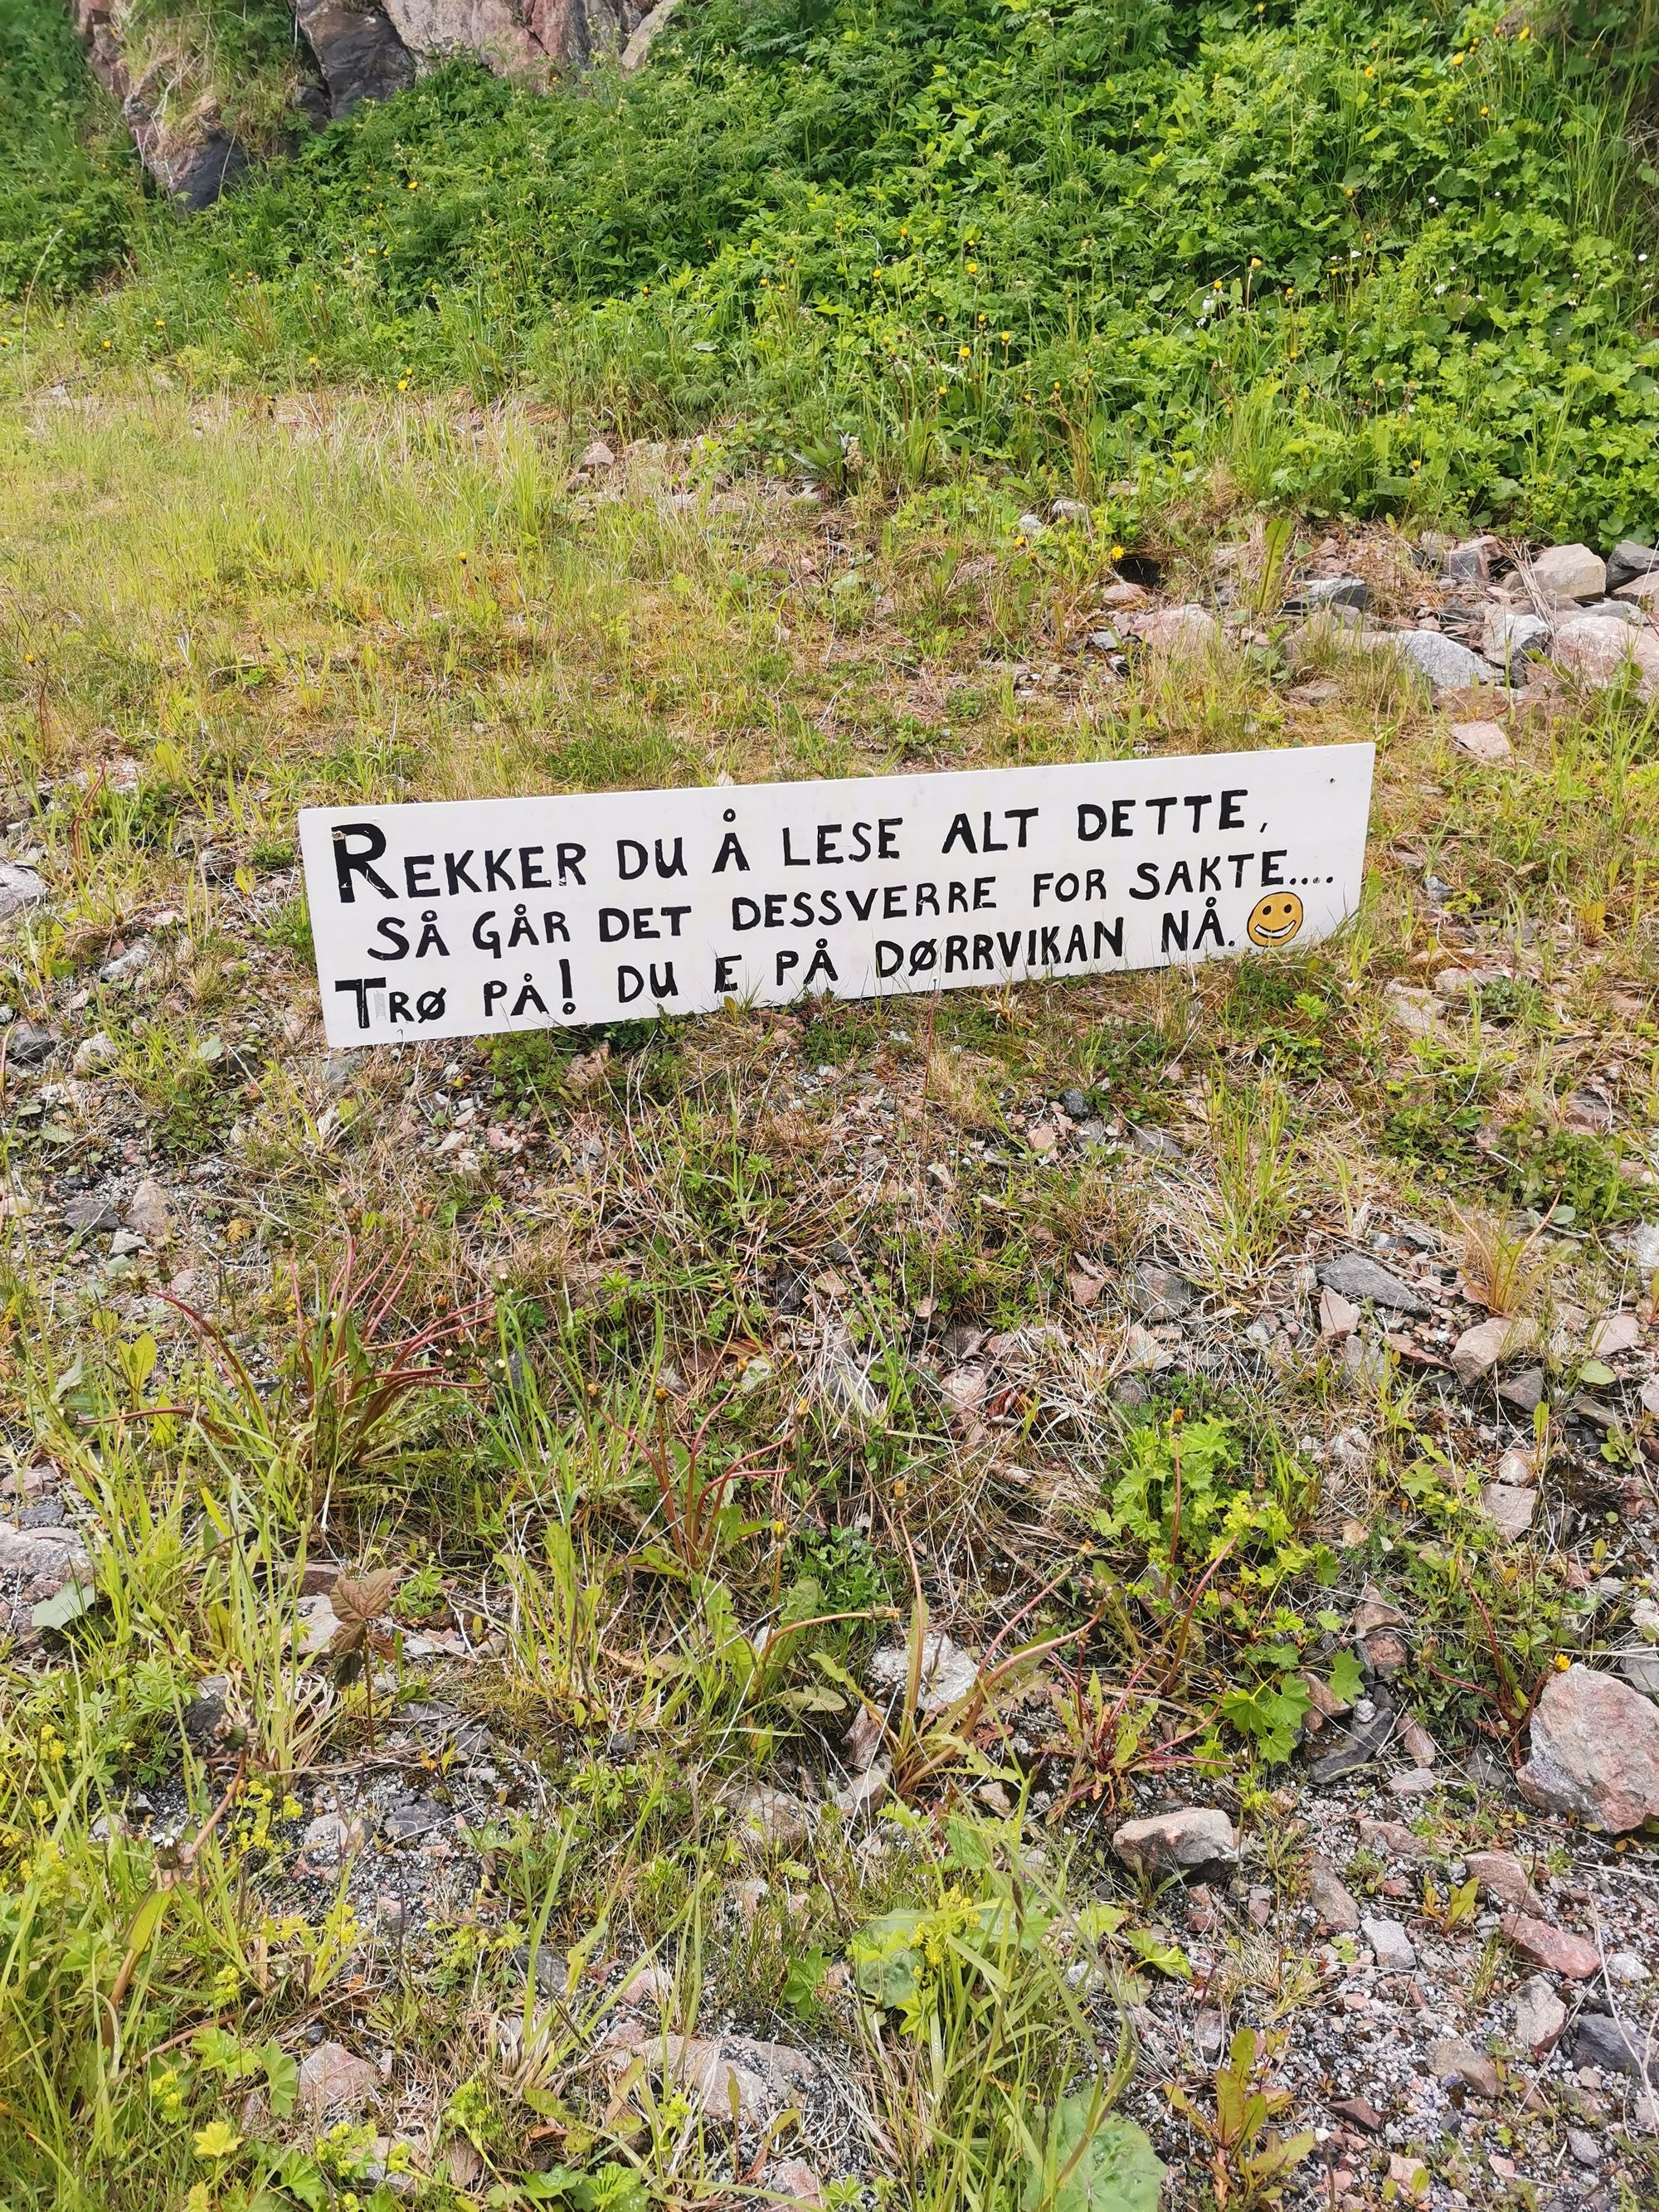 REKKER DU Å LESE ALT DETTE,
SÅ GÅR DET DESSVERRE FOR SAKTE....
TRØ PÅ! DU E PÅ DØRRVIKAN NÅ.